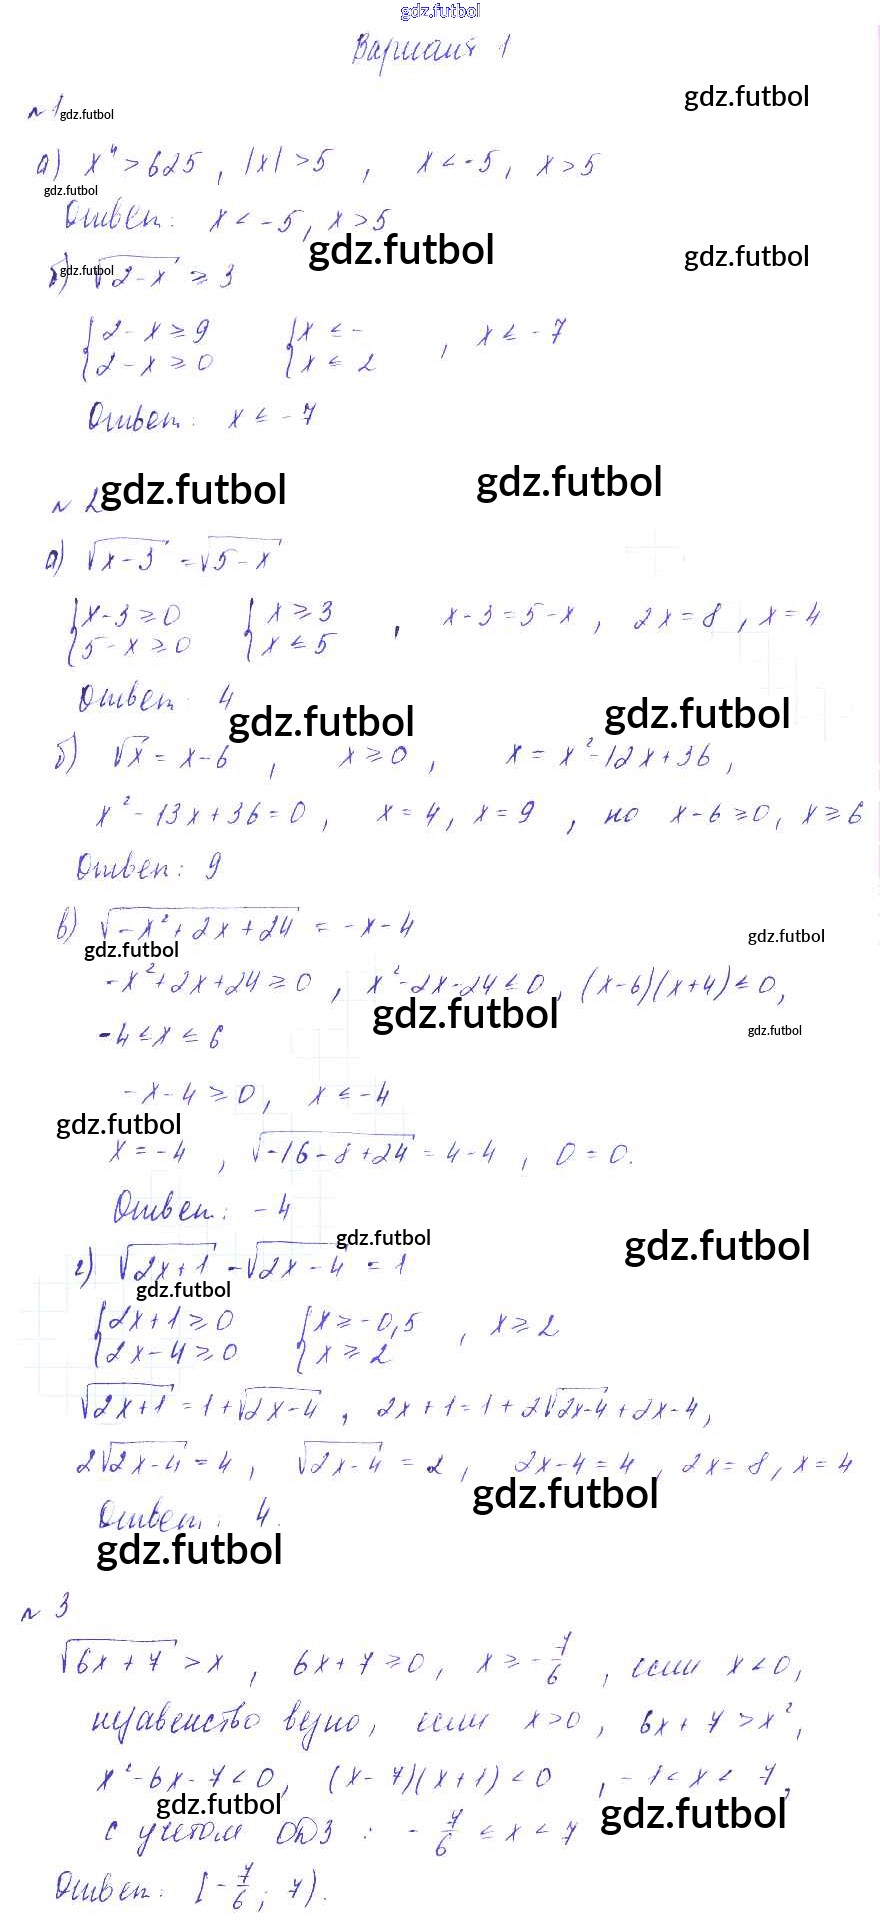 gdz.futbol
Вариант 1
gdz.futbol
№ 1 gdz.futbol
а) x⁴ > 625, |x| > 5, x < -5, x > 5
gdz.futbol
Ответ: x < -5, x > 5
gdz.futbol gdz.futbol
б) √(2-x) ≥ 3 gdz.futbol
{2-x ≥ 9 {x ≤ -
{2-x ≥ 0 {x ≤ 2 , x ≤ -7
Ответ: x ≤ -7
№ 2 gdz.futbol gdz.futbol
а) √(x-3) = √(5-x)
{x-3 ≥ 0 {x ≥ 3
{5-x ≥ 0 {x ≤ 5 , x-3 = 5-x, 2x = 8, x = 4
Ответ: 4
gdz.futbol gdz.futbol
б) √x = x-6, x ≥ 0, x = x²-12x+36,
x²-13x+36=0, x=4, x=9, но x-6≥0, x≥6
Ответ: 9
в) √(-x²+2x+24) = -x-4
gdz.futbol gdz.futbol
-x²+2x+24 ≥ 0, x²-2x-24 ≤ 0, (x-6)(x+4) ≤ 0,
gdz.futbol gdz.futbol
-4 ≤ x ≤ 6
-x-4 ≥ 0, x ≤ -4
gdz.futbol
x = -4, √(-16-8+24) = 4-4, 0 = 0.
Ответ: -4
gdz.futbol gdz.futbol
г) √(2x+1) - √(2x-4) = 1
gdz.futbol
{2x+1 ≥ 0 {x ≥ -0,5
{2x-4 ≥ 0 {x ≥ 2 , x ≥ 2
√(2x+1) = 1+√(2x-4), 2x+1=1+2√(2x-4)+2x-4,
2√(2x-4) = 4, √(2x-4) = 2, 2x-4 = 4, 2x = 8, x = 4
gdz.futbol
Ответ: 4.
gdz.futbol
№ 3
√(6x+7) > x, 6x+7 ≥ 0, x ≥ -7/6, если x < 0,
неравенство верно, если x > 0, 6x+7 > x²,
x²-6x-7 < 0, (x-7)(x+1) < 0, -1 < x < 7,
gdz.futbol gdz.futbol
с учетом ОДЗ: -7/6 ≤ x < 7
Ответ: [-7/6; 7).